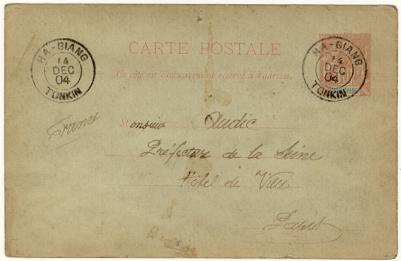 HA-GIANG
14
DEC
04
TONKIN
CARTE POSTALE
Ce côté est exclusivement réservé à l'adresse.
HA-GIANG
14
DEC
04
TONKIN
France
Monsieur Audic
Préfecture de la Seine
Hôtel de Ville
Paris